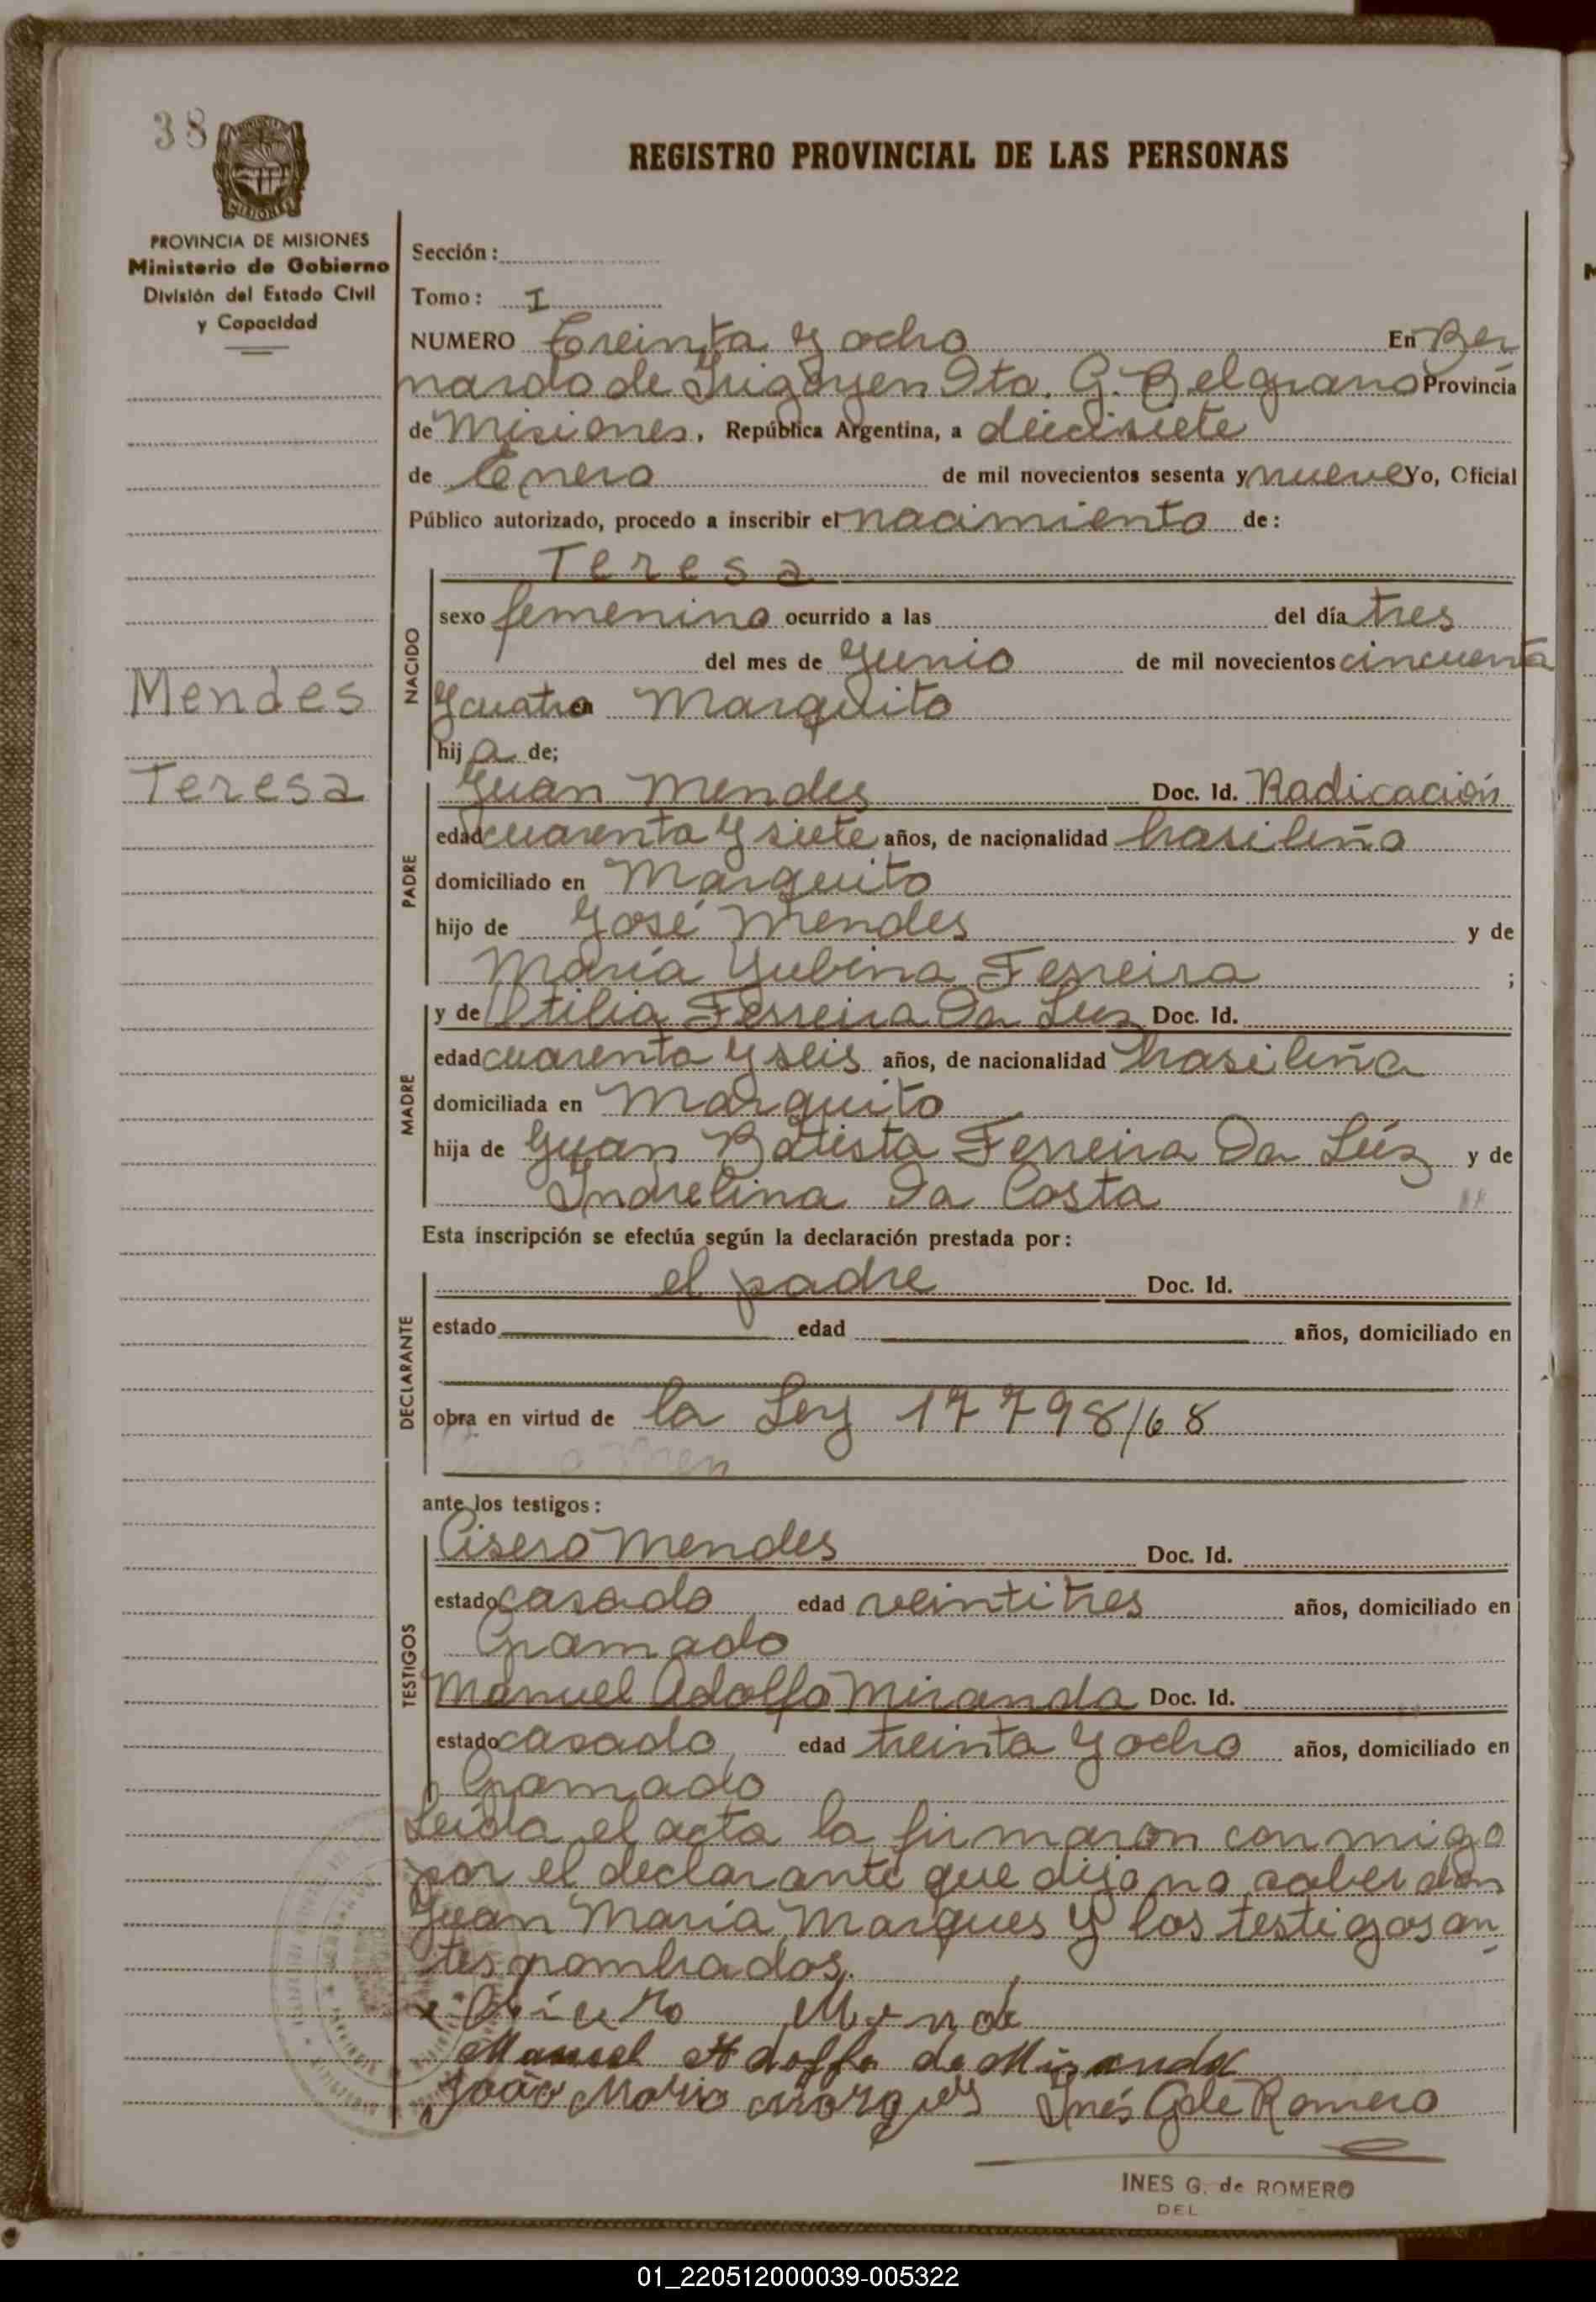 38
REGISTRO PROVINCIAL DE LAS PERSONAS
PROVINCIA DE MISIONES
Ministerio de Gobierno
División del Estado Civil
y Capacidad
Mendes
Teresa
Sección:
Tomo: I
NUMERO Treinta y ocho En Ber
nardo de Irigoyen Dto. G. Belgrano Provincia
de Misiones, República Argentina, a diecisiete
de Enero de mil novecientos sesenta y nueve Yo, Oficial
Público autorizado, procedo a inscribir el nacimiento de:
NACIDO
Teresa
sexo femenino ocurrido a las del día tres
del mes de Junio de mil novecientos cincuenta
y cuatro en Marquito
hij a de;
PADRE
Juan Mendes Doc. Id. Radicación
edad cuarenta y siete años, de nacionalidad brasileño
domiciliado en Marquito
hijo de José Mendes y de
María Jubina Ferreira ;
MADRE
y de Otilia Ferreira Da Luz Doc. Id.
edad cuarenta y seis años, de nacionalidad brasileña
domiciliada en Marquito
hija de Juan Batista Ferreira Da Lúz y de
Indrelina Da Costa
Esta inscripción se efectúa según la declaración prestada por:
DECLARANTE
el padre Doc. Id.
estado edad años, domiciliado en
obra en virtud de la Ley 17798/68
ante los testigos:
TESTIGOS
Cisero Mendes Doc. Id.
estado casado edad veintitres años, domiciliado en
Gramado
Manuel Adolfo Miranda Doc. Id.
estado casado, edad treinta y ocho años, domiciliado en
Gramado
Leída el acta la firmaron conmigo
por el declarante que dijo no saber don
Juan María Marques y los testigos an
tes nombrados.
Manuel Adolfo de Miranda
João Maria Marques Inés G de Romero
INES G. de ROMERO
DEL
01_220512000039-005322